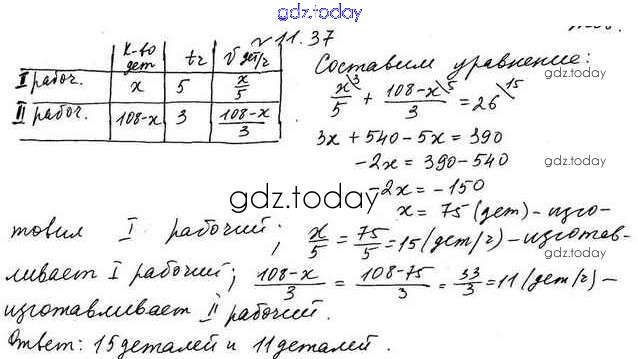 gdz.today
№ 11.37
К-во дет | t ч | V дет/ч
I рабоч. | x | 5 | x/5
II рабоч. | 108-x | 3 | (108-x)/3
Составим уравнение:
x/5 \3 + (108-x)/3 \5 = 26 \15
gdz.today
3x + 540 - 5x = 390
-2x = 390 - 540
gdz.today
-2x = -150
gdz.today
x = 75 (дет) - изго-
товил I рабочий; x/5 = 75/5 = 15 (дет/ч) - изготав-
gdz.today
ливает I рабочий; (108-x)/3 = (108-75)/3 = 33/3 = 11 (дет/ч) -
изготавливает II рабочий.
Ответ: 15 деталей и 11 деталей.
gdz.today